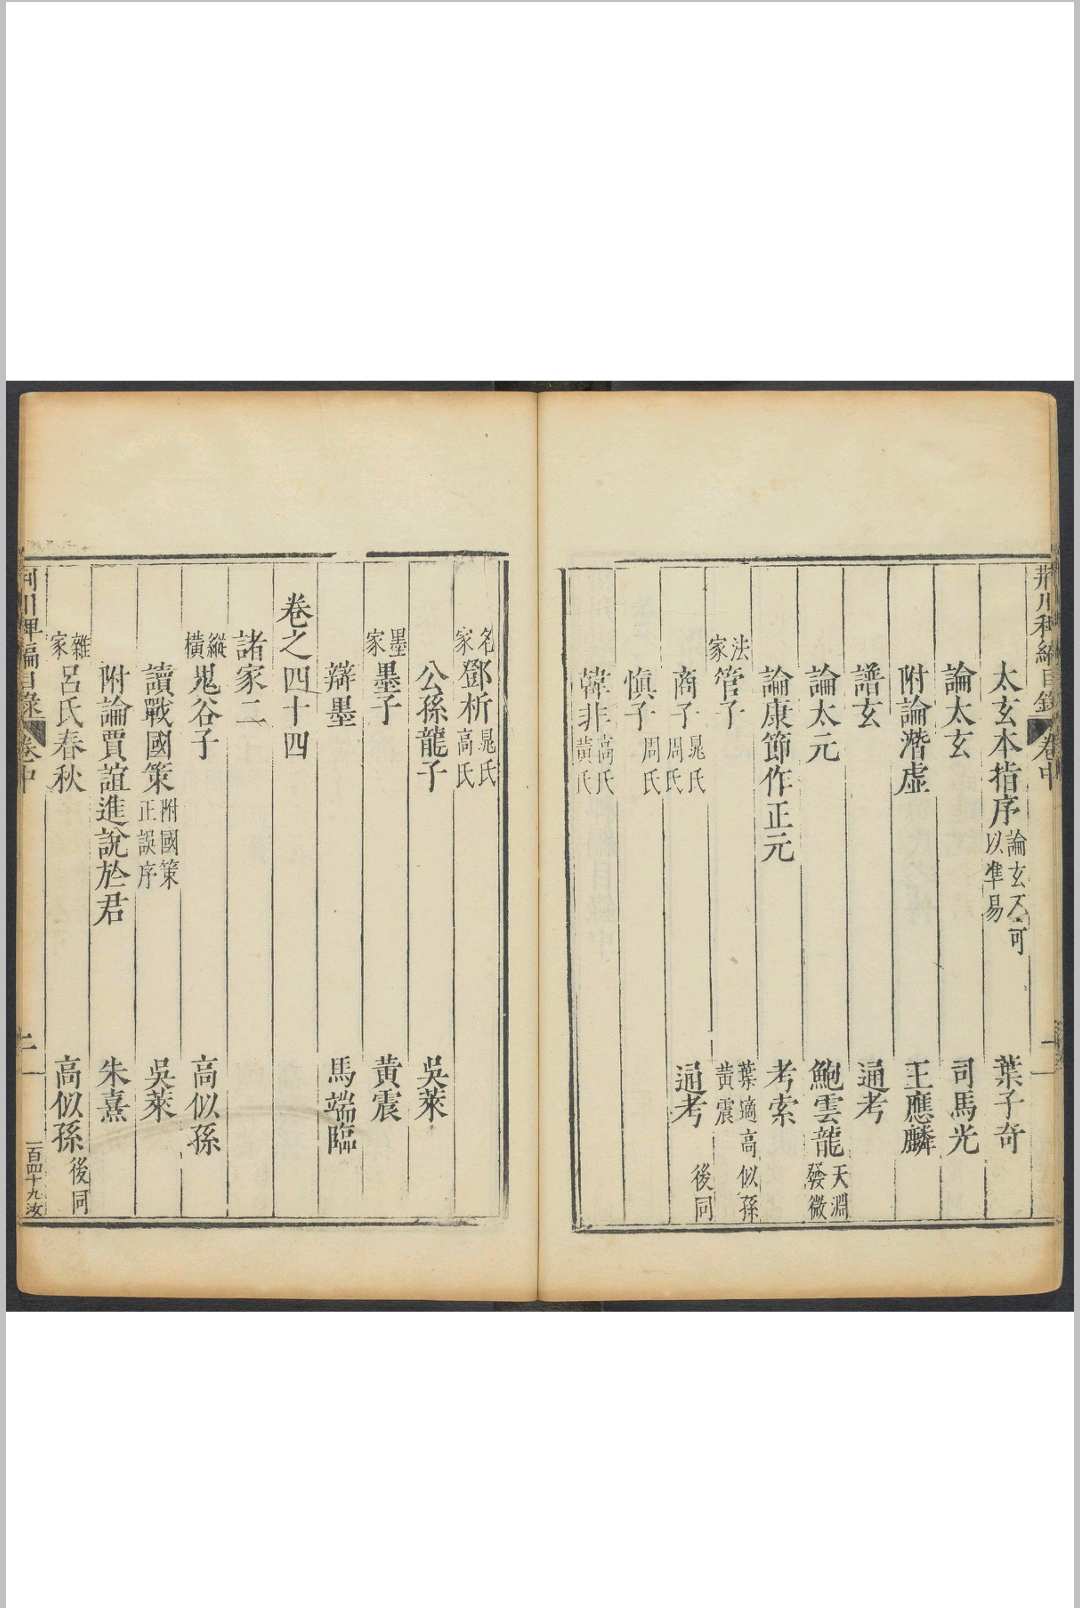 荆川稗編目錄 卷中
太玄本指序 論玄不可以準易 葉子奇
論太玄 司馬光
附論潛虛 王應麟
譜玄 通考
論太元 鮑雲龍 天淵發微
論康節作正元 考索
法家 管子 葉適 高似孫 黃震
商子 晁氏 周氏 通考 後同
慎子 周氏
韓非 高氏 黃氏
名家 鄧析 晁氏 高氏
公孫龍子 吳萊
墨家 墨子 黃震
辯墨 馬端臨
卷之四十四
諸家二
縱橫 鬼谷子 高似孫
讀戰國策 附國策正誤序 吳萊
附論賈誼進說於君 朱熹
雜家 呂氏春秋 高似孫 後同
荆川稗編目錄 卷中 一百四十九汝